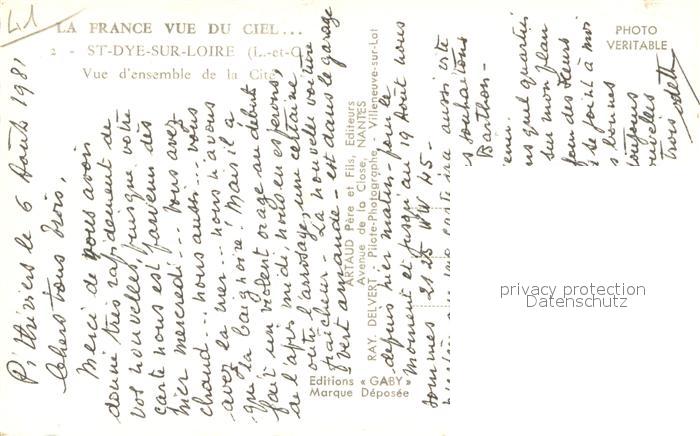 41
LA FRANCE VUE DU CIEL...
2 - ST-DYE-SUR-LOIRE (L.-et-C
Vue d'ensemble de la Cité
PHOTO
VERITABLE
Pithiviers le 6 Août 1981
Chers tous trois,
Merci de nous avoir
donné très rapidement de
vos nouvelles, puisque votre
carte nous est parvenue dès
hier mercredi... Vous avez
chaud... nous aussi... vous
avez la mer... nous n'avons
que la baignoire! Mais il a
fait un violent orage au début
de l'après midi, nous en espérons,
outre l'arrosage, une certaine
fraîcheur. La nouvelle voiture
vert amande - est dans le garage
depuis hier matin, pour le
moment et jusqu'au 19 Août nous
sommes 2125 WW 45 -
aussi été
souhaitons
Barthon -
quel quartier
sur mon plan
des fleurs
se joint à moi
bonnes
trois
Odette
ARTAUD Père et Fils, Editeurs
Avenue de la Close, NANTES
RAY. DELVERT - Pilote-Photographe - Villeneuve-sur-Lot
Editions « GABY »
Marque Déposée
privacy protection
Datenschutz